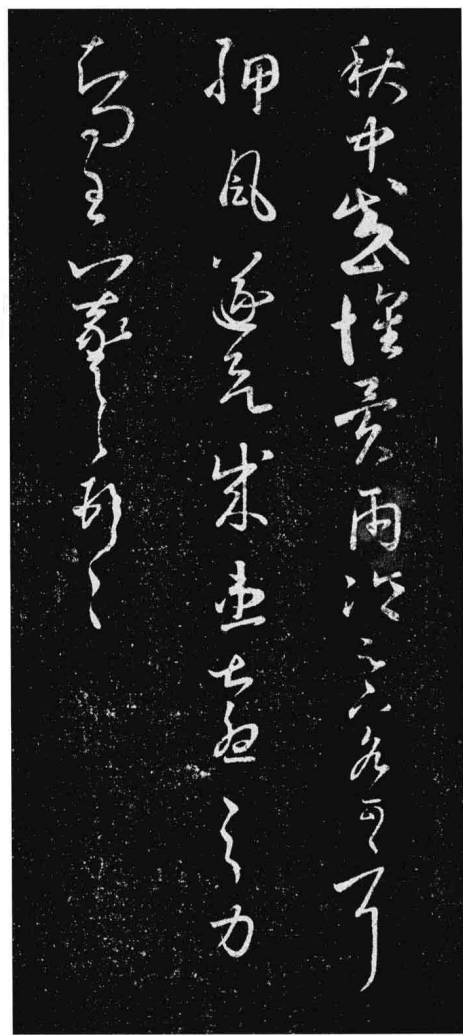 秋中感懷異雨冷足下各可耳
胛風遂欲成患甚憂之力
知問王羲之頓首